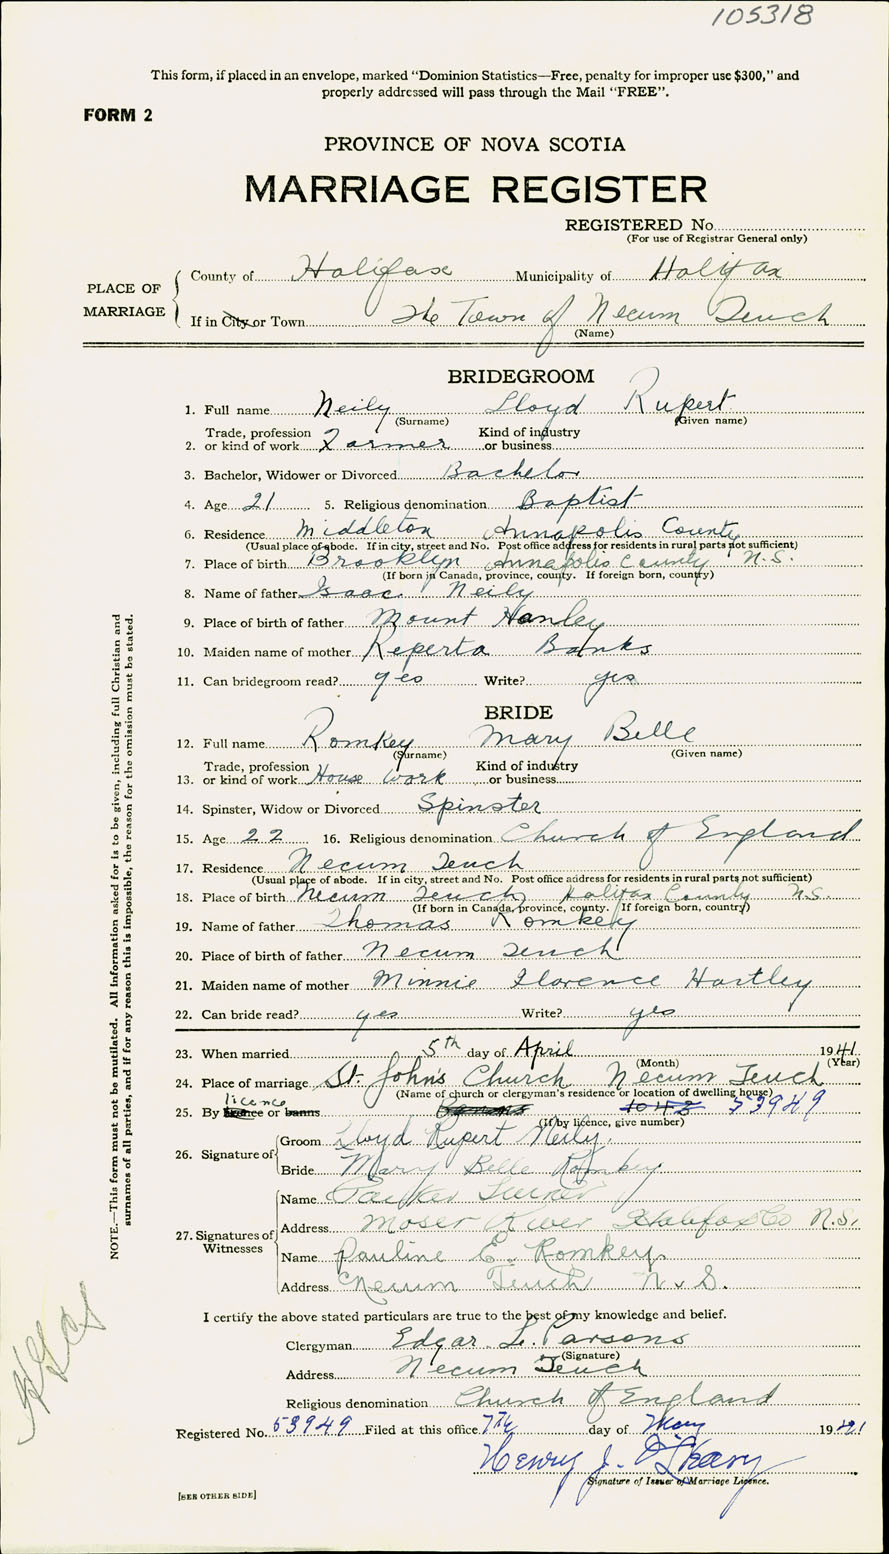 105318
This form, if placed in an envelope, marked "Dominion Statistics—Free, penalty for improper use $300," and
properly addressed will pass through the Mail "FREE".
FORM 2
PROVINCE OF NOVA SCOTIA
MARRIAGE REGISTER
REGISTERED No.
(For use of Registrar General only)
PLACE OF MARRIAGE
County of Halifax Municipality of Halifax
If in City or Town The Town of Necum Teuch
(Name)
BRIDEGROOM
1. Full name Neily Lloyd Rupert
(Surname) (Given name)
Trade, profession Kind of industry
2. or kind of work Farmer or business
3. Bachelor, Widower or Divorced Bachelor
4. Age 21 5. Religious denomination Baptist
6. Residence Middleton Annapolis County
(Usual place of abode. If in city, street and No. Post office address for residents in rural parts not sufficient)
7. Place of birth Brooklyn Annapolis County N.S.
(If born in Canada, province, county. If foreign born, country)
8. Name of father Isaac Neily
9. Place of birth of father Mount Hanley
10. Maiden name of mother Reperta Banks
11. Can bridegroom read? yes Write? yes
BRIDE
12. Full name Romkey Mary Belle
(Surname) (Given name)
Trade, profession Kind of industry
13. or kind of work House Work or business
14. Spinster, Widow or Divorced Spinster
15. Age 22 16. Religious denomination Church of England
17. Residence Necum Teuch
(Usual place of abode. If in city, street and No. Post office address for residents in rural parts not sufficient)
18. Place of birth Necum Teuch Halifax County N.S.
(If born in Canada, province, county. If foreign born, country)
19. Name of father Thomas Romkey
20. Place of birth of father Necum Teuch
21. Maiden name of mother Minnie Florence Hartley
22. Can bride read? yes Write? yes
23. When married 5th day of April 1941
(Month) (Year)
24. Place of marriage St. John's Church Necum Teuch
(Name of church or clergyman's residence or location of dwelling house)
licence
25. By licence or banns 53949
(If by licence, give number)
26. Signature of
Groom Lloyd Rupert Neily.
Bride Mary Belle Romkey
27. Signatures of Witnesses
Name
Address Moser River Halifax Co N.S.
Name Pauline E. Romkey.
Address Necum Teuch N.S.
I certify the above stated particulars are true to the best of my knowledge and belief.
Clergyman Edgar L. Parsons
(Signature)
Address Necum Teuch
Religious denomination Church of England
Registered No. 53949 Filed at this office 7th day of May 1941
Henry J. O'Leary
Signature of Issuer of Marriage Licence.
[SEE OTHER SIDE]
NOTE.—This form must not be mutilated. All information asked for is to be given, including full Christian and
surnames of all parties, and if for any reason this is impossible, the reason for the omission must be stated.